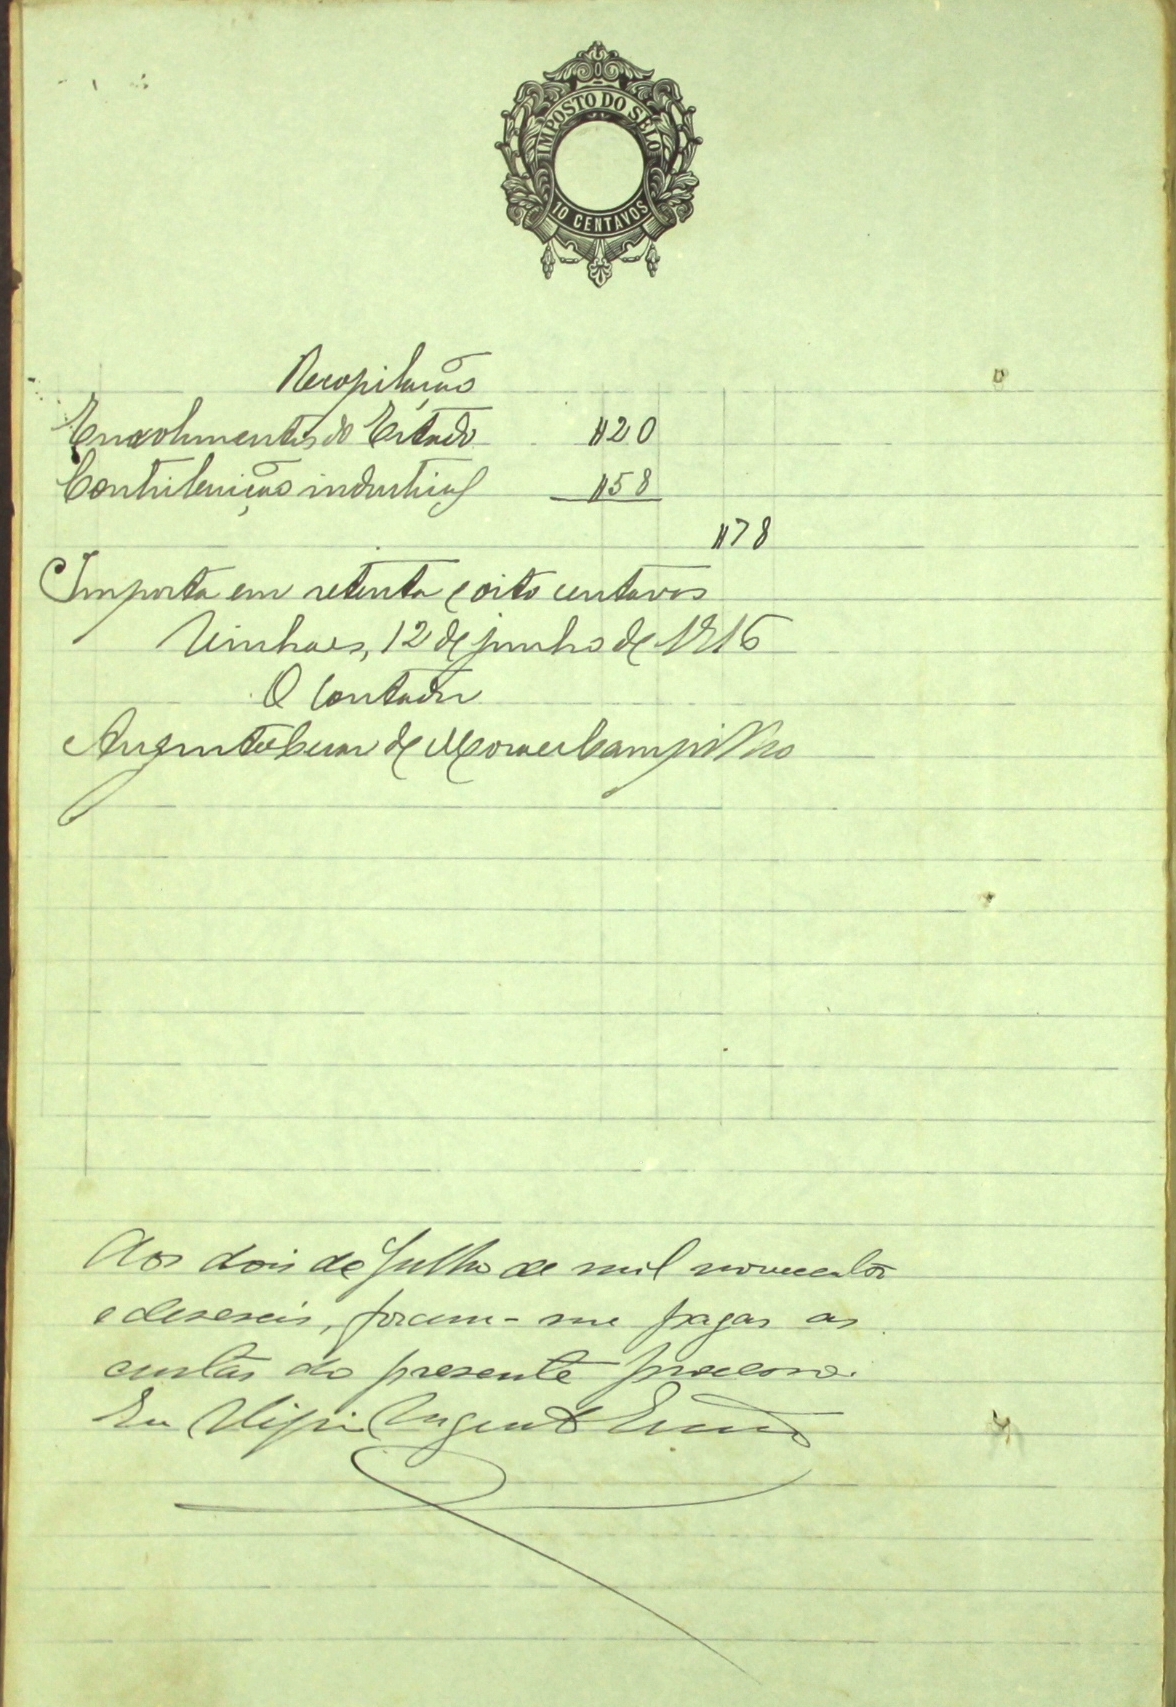 IMPOSTO DO SELO
10 CENTAVOS
Recopilação
Emolumentos do Estado $20
Contribuição industrial $58
$78
Importa em setenta e oito centavos
Vinhaes, 12 de junho de 1916
O Contador
Augusto Cesar de Moraes Campilho
Aos dois de Julho de mil novecentos
e deseseis, foram-me pagas as
custas do presente processo.
Eu